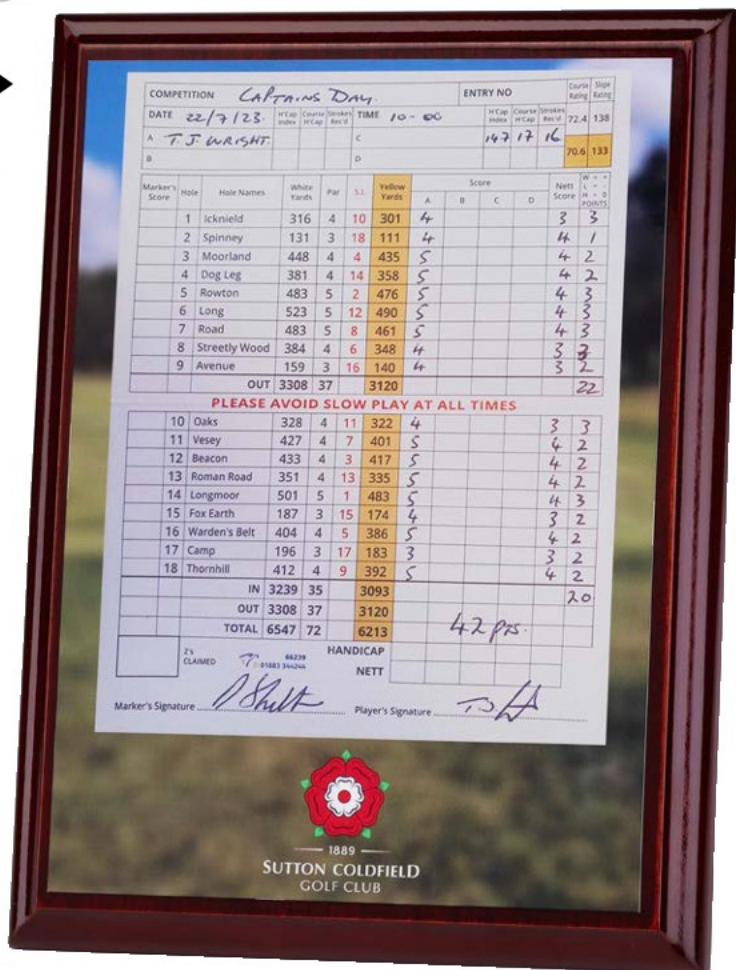 COMPETITION CAPTAINS DAY. ENTRY NO Course Rating Slope Rating
DATE 22/7/23 H'Cap Index Course H'Cap Strokes Rec'd TIME 10-00 H'Cap Index Course H'Cap Strokes Rec'd 72.4 138
A T. J. WRIGHT. C 147 17 16 70.6 133
B D
Marker's Score Hole Hole Names White Yards Par S.I. Yellow Yards Score A B C D Nett Score W = + L = - H = 0 POINTS
1 Icknield 316 4 10 301 4 3 3
2 Spinney 131 3 18 111 4 4 1
3 Moorland 448 4 4 435 5 4 2
4 Dog Leg 381 4 14 358 5 4 2
5 Rowton 483 5 2 476 5 4 3
6 Long 523 5 12 490 5 4 3
7 Road 483 5 8 461 5 4 3
8 Streetly Wood 384 4 6 348 4 3 3
9 Avenue 159 3 16 140 4 3 2
OUT 3308 37 3120 22
PLEASE AVOID SLOW PLAY AT ALL TIMES
10 Oaks 328 4 11 322 4 3 3
11 Vesey 427 4 7 401 5 4 2
12 Beacon 433 4 3 417 5 4 2
13 Roman Road 351 4 13 335 5 4 2
14 Longmoor 501 5 1 483 5 4 3
15 Fox Earth 187 3 15 174 4 3 2
16 Warden's Belt 404 4 5 386 5 4 2
17 Camp 196 3 17 183 3 3 2
18 Thornhill 412 4 9 392 5 4 2
IN 3239 35 3093 20
OUT 3308 37 3120
TOTAL 6547 72 6213 42 pts.
2's CLAIMED 66239 01883 344244 HANDICAP
NETT
Marker's Signature Player's Signature
1889
SUTTON COLDFIELD
GOLF CLUB